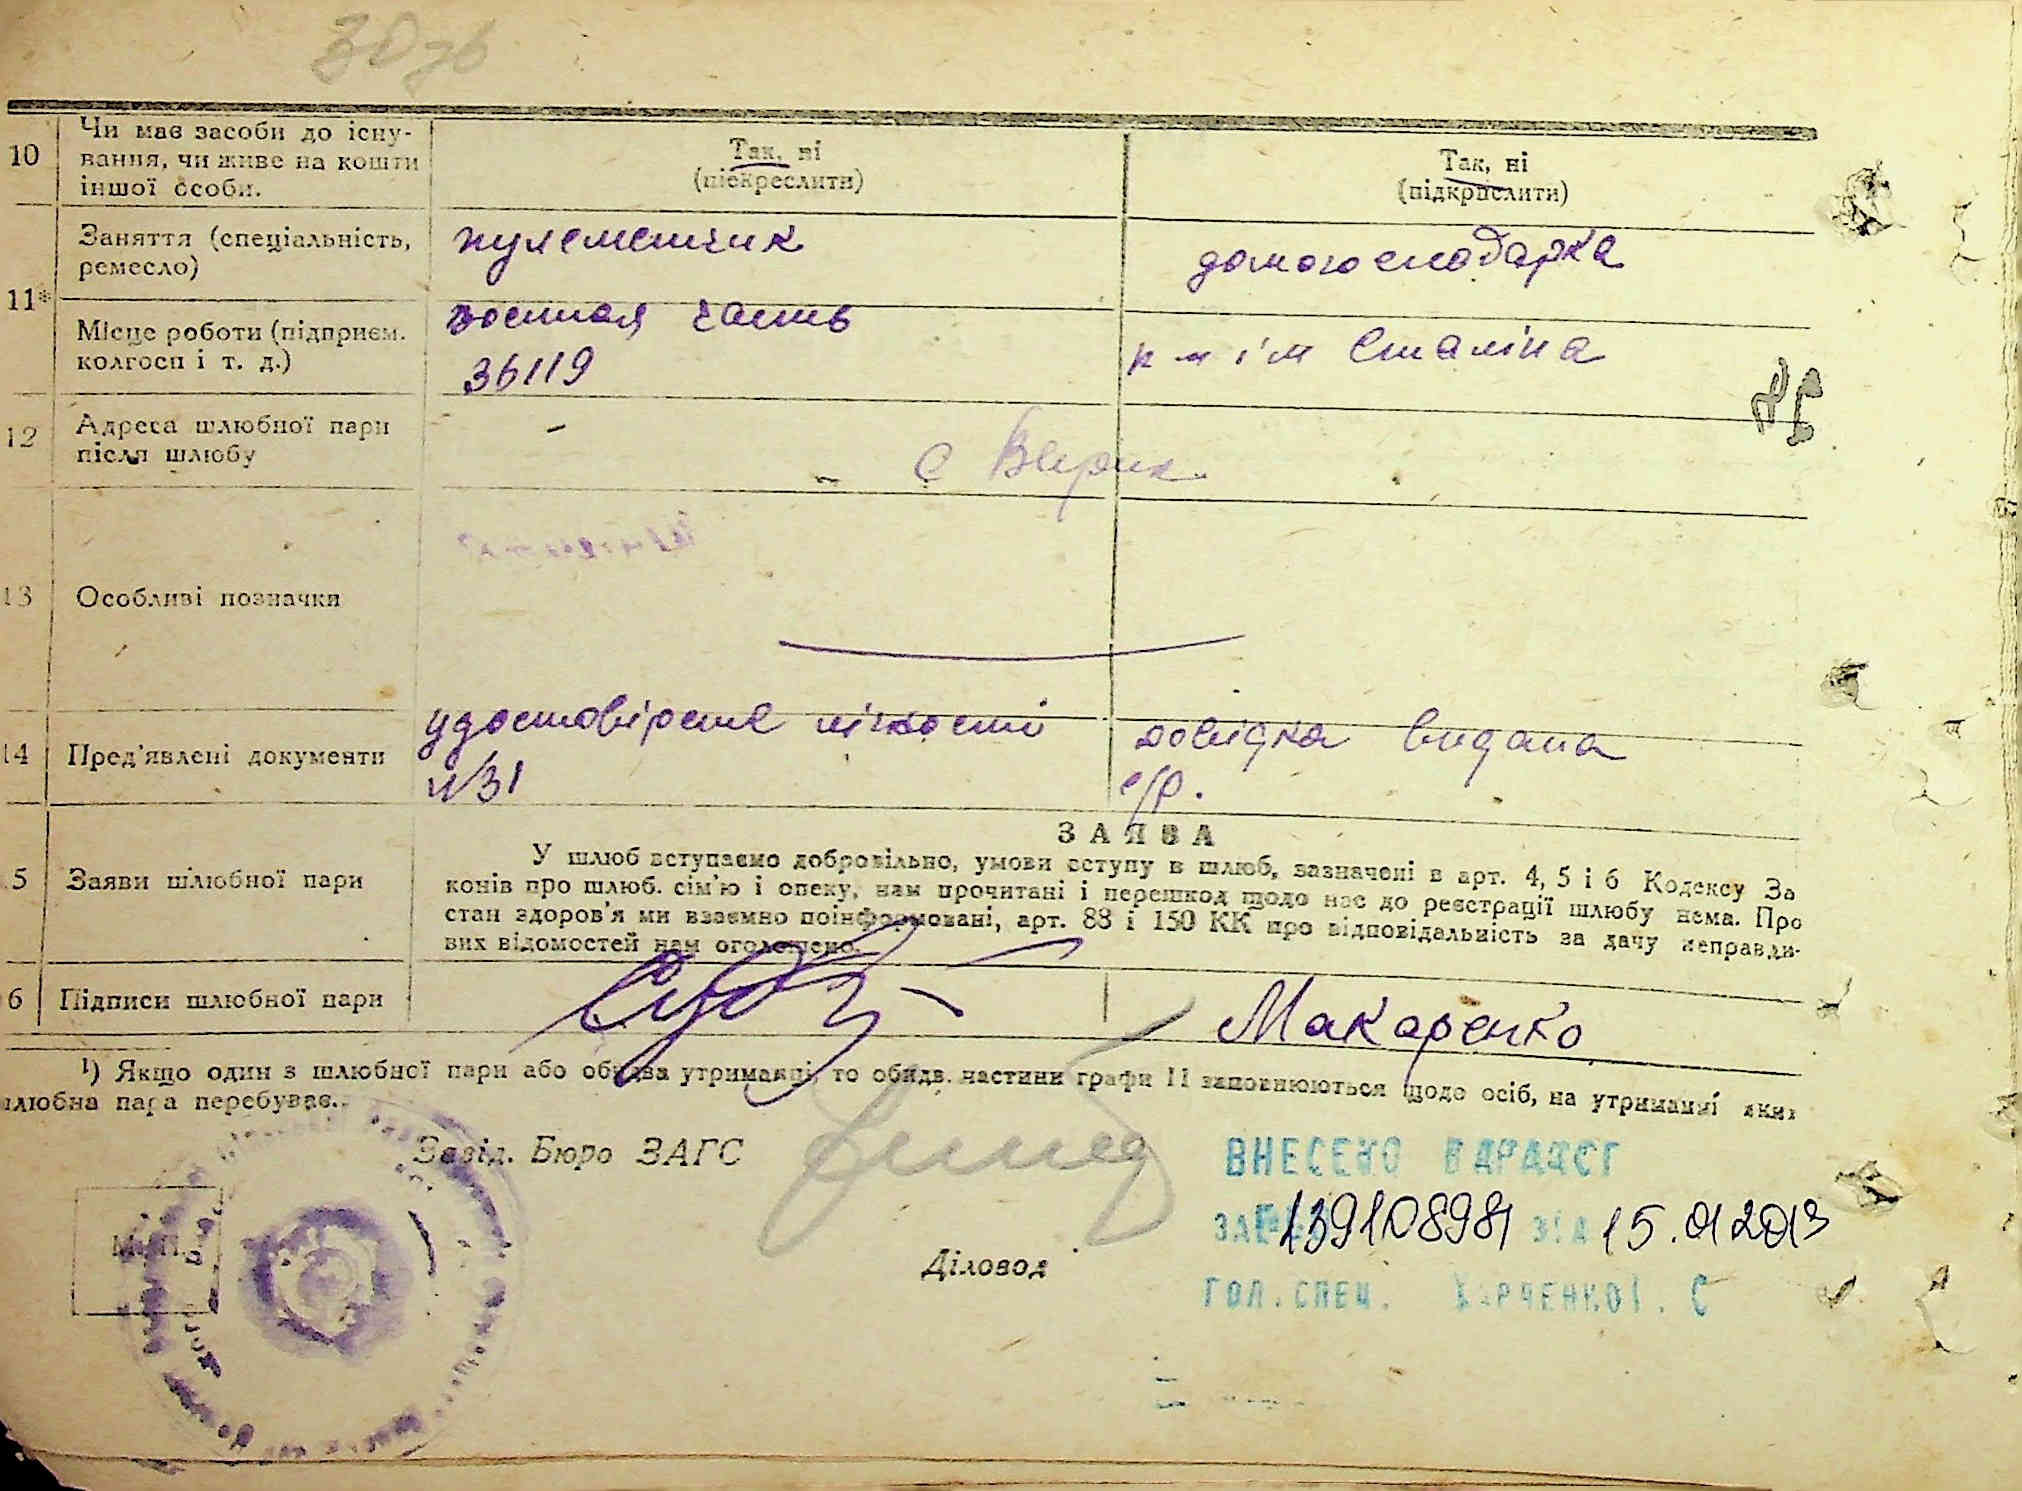 10
Чи має засоби до існу-
вання, чи живе на кошти
іншої особи.
Так, ні
(підкреслити)
Так, ні
(підкреслити)
11*
Заняття (спеціальність,
ремесло)
пулеметчик
домогосподарка
Місце роботи (підприєм.
колгосп і т. д.)
военная часть
36119
ім Сталіна
12
Адреса шлюбної пари
після шлюбу
–
с
13
Особливі позначки
14
Пред'явлені документи
удостовіреня лічності
№31
довідка видана
с/р.
5
Заяви шлюбної пари
ЗАЯВА
У шлюб вступаємо добровільно, умови вступу в шлюб, зазначені в арт. 4, 5 і 6 Кодексу За
конів про шлюб. сім'ю і опеку, нам прочитані і перешкод щодо нас до реєстрації шлюбу нема. Про
стан здоров'я ми взаємно поінформовані, арт. 88 і 150 КК про відповідальність за дачу неправди-
вих відомостей нам оголошено.
6
Підписи шлюбної пари
Макаренко
¹) Якщо один з шлюбної пари або обидва утриманці, то обидв. частини графи 11 заповнюються щодо осіб, на утриманні яких
шлюбна пара перебуває.
Завід. Бюро ЗАГС
М. П.
Діловод
ВНЕСЕНО В ДРАЦСГ
ЗА № 139108981 ВІД 15.01 2013
ГОЛ.СПЕЦ. ХАРЧЕНКО І. С